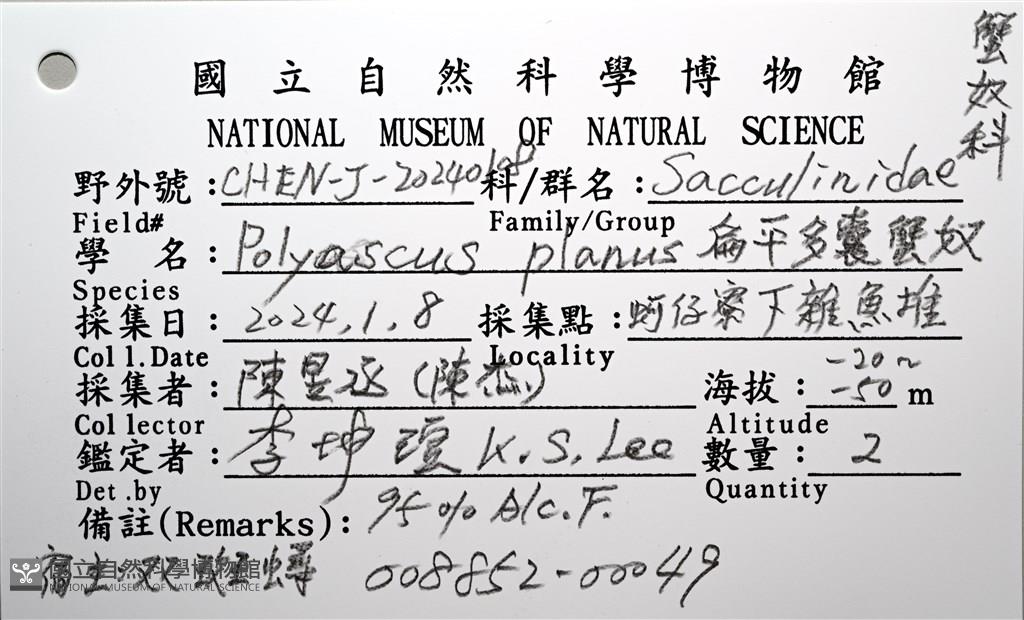 蟹奴科
國立自然科學博物館
NATIONAL MUSEUM OF NATURAL SCIENCE
野外號:CHEN-J-20240108 科/群名:Sacculinidae
Field# Family/Group
學名:Polyascus planus 扁平多囊蟹奴
Species
採集日:2024.1.8 採集點:蚵仔寮下雜魚堆
Coll.Date Locality
採集者:陳昱丞(陳杰) 海拔:-20~-50 m
Collector Altitude
鑑定者:李坤瑄 K.S.Lee 數量:2
Det.by Quantity
備註(Remarks):95% Alc.F.
宿主: 蟳 008852-00049
國立自然科學博物館
NATIONAL MUSEUM OF NATURAL SCIENCE